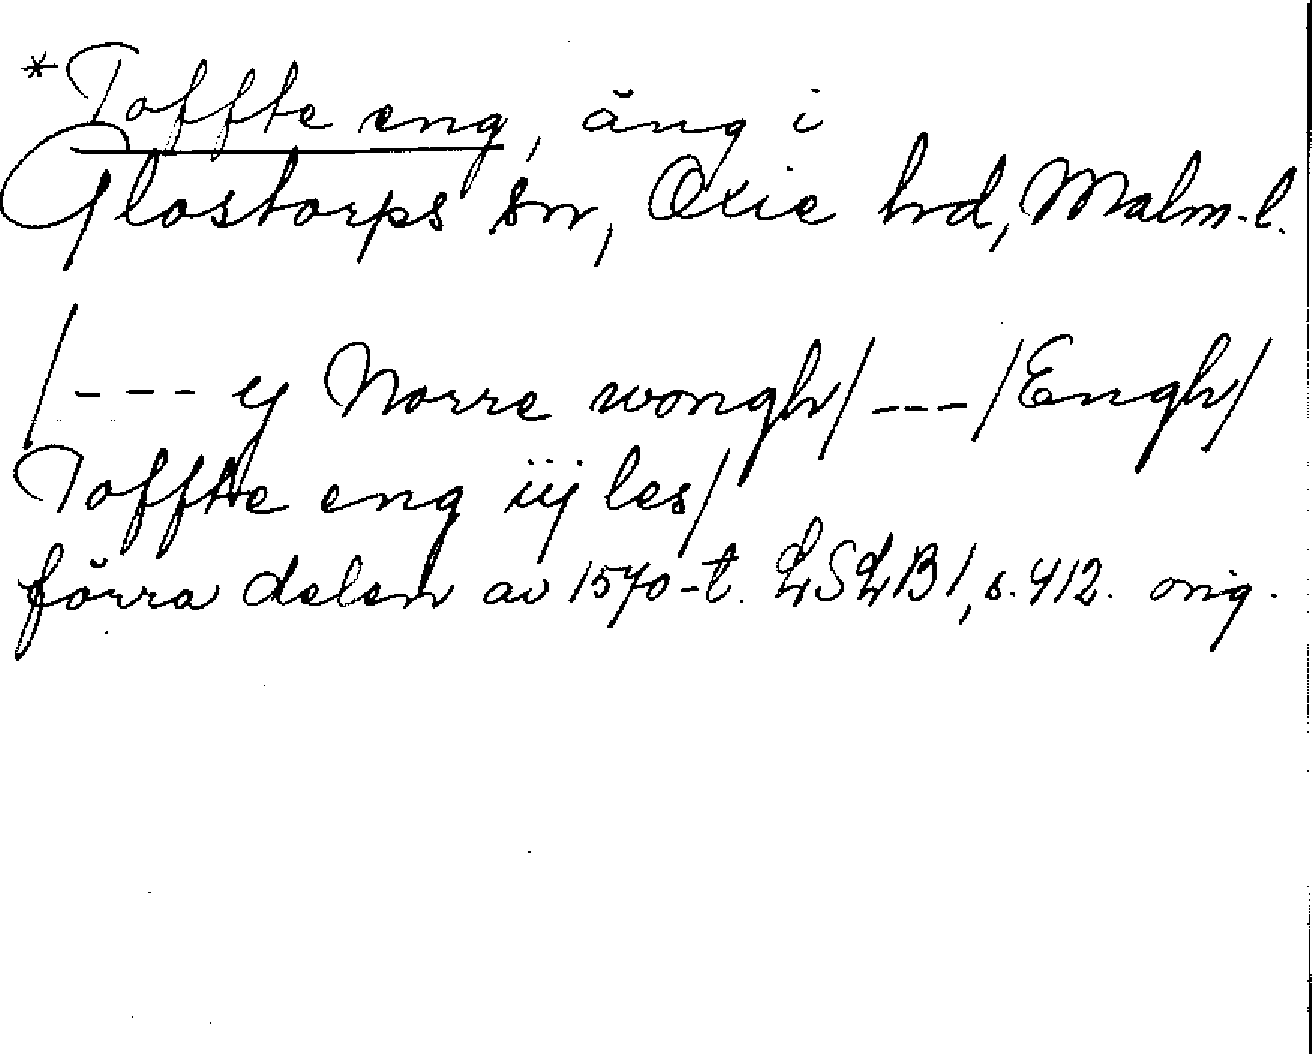 *Toffte eng, äng i
Glostorps sn, Oxie hrd, Malm.l.
/--- y Norre wongh/---/Engh/
Toffte eng iij les/
förra delen av 1570-t. LSLB1, s. 412. orig.